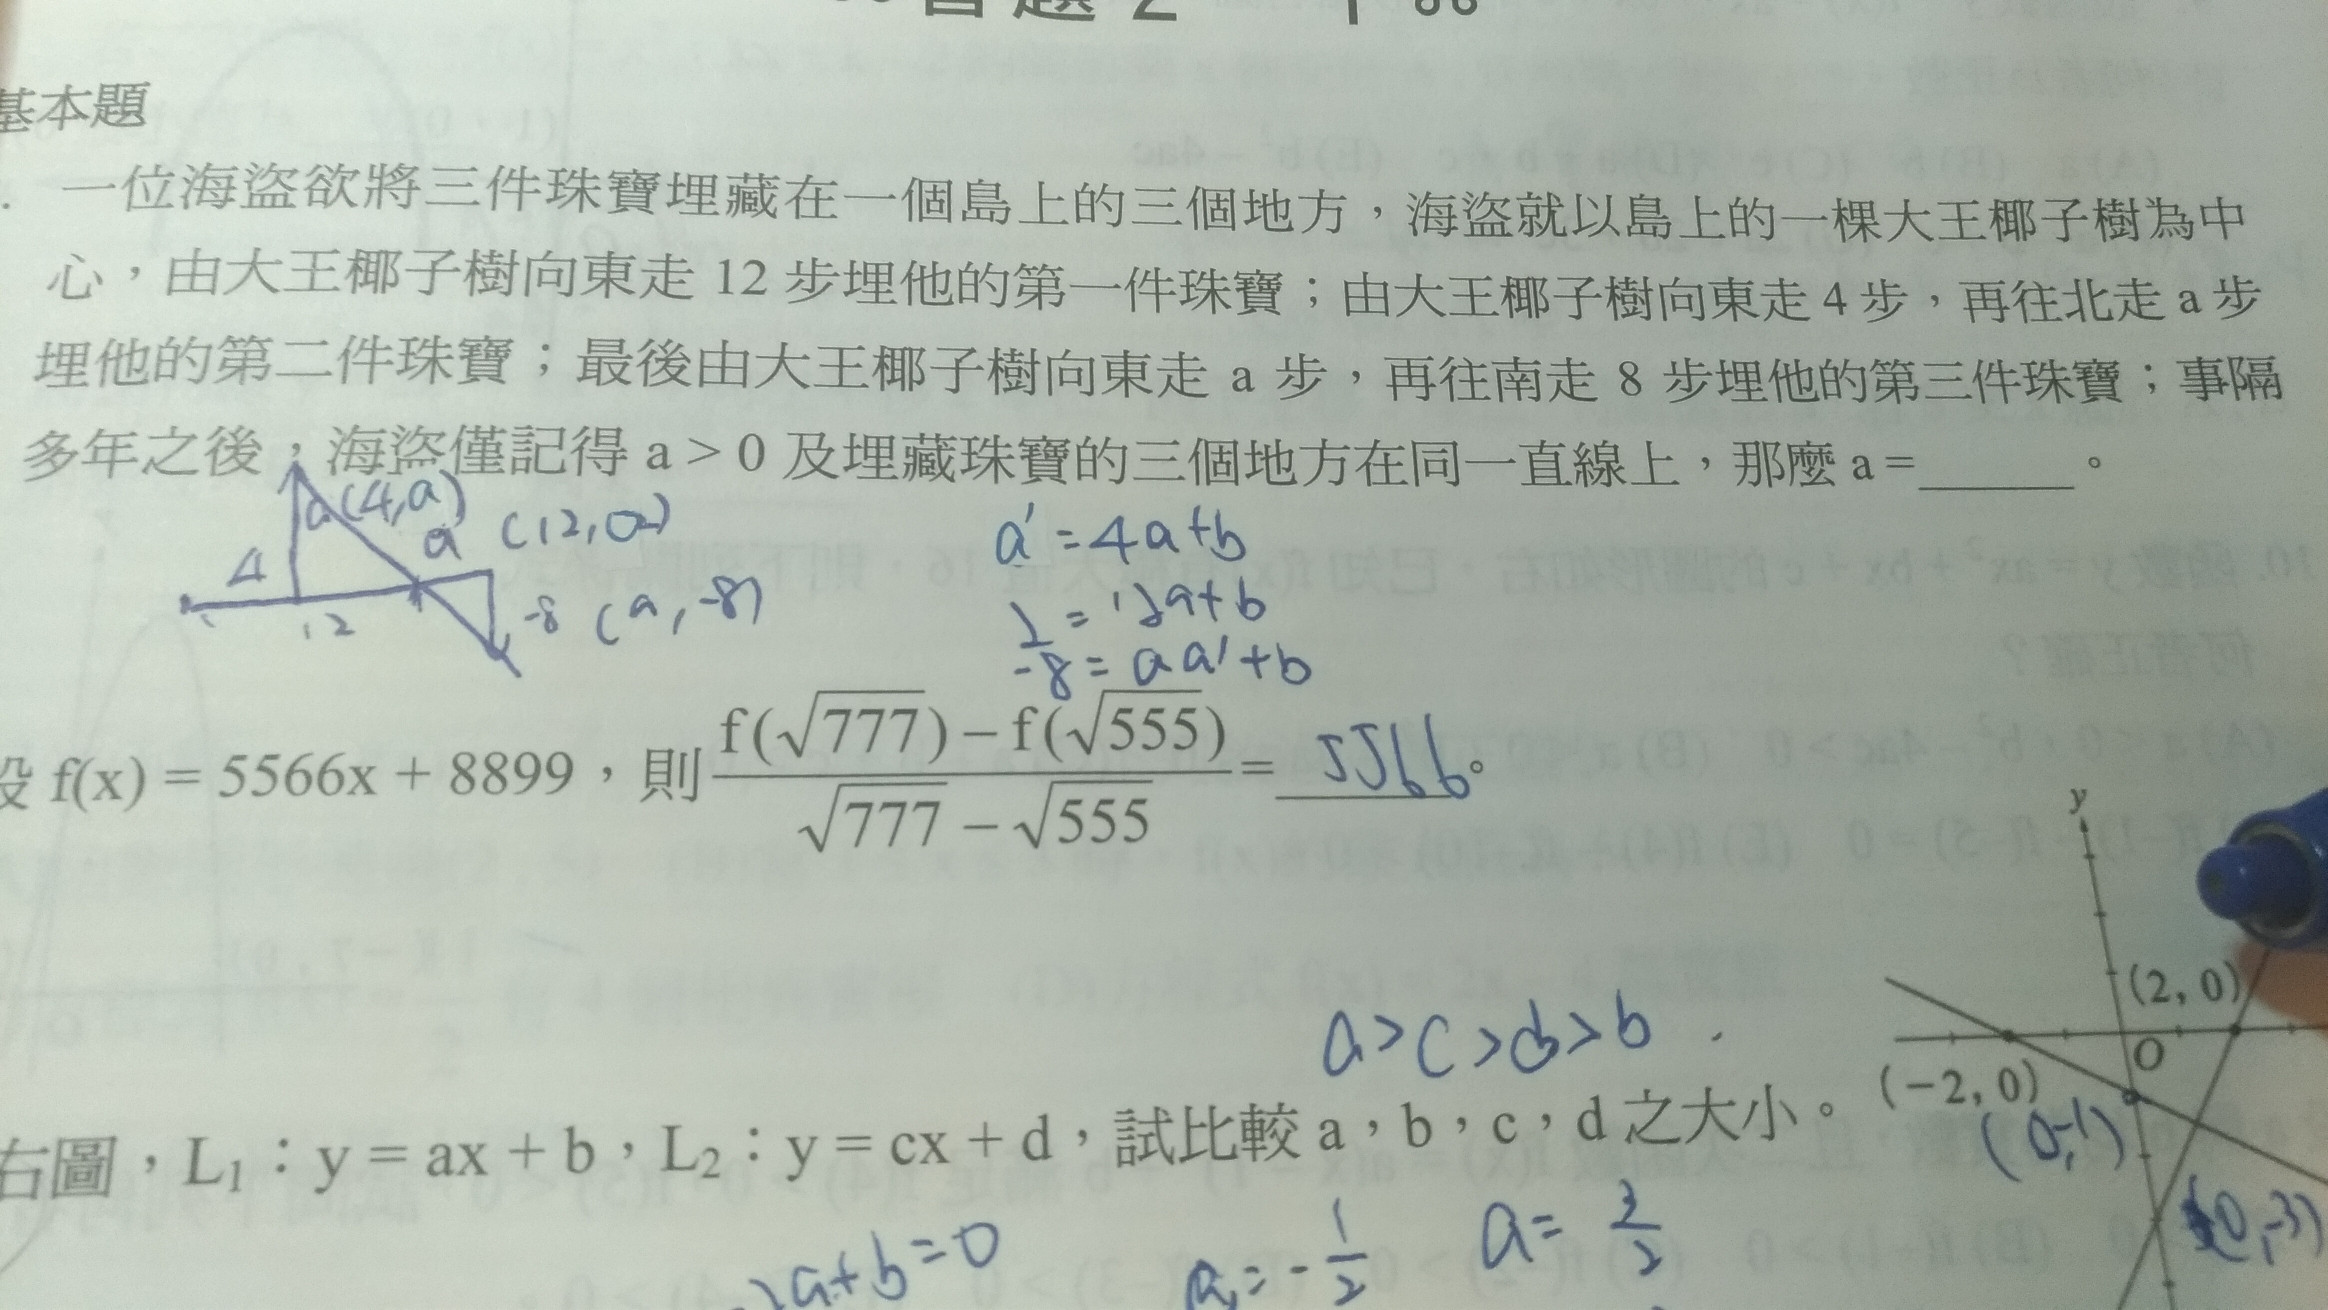 習題 2
基本題
一位海盜欲將三件珠寶埋藏在一個島上的三個地方，海盜就以島上的一棵大王椰子樹為中
心，由大王椰子樹向東走 12 步埋他的第一件珠寶；由大王椰子樹向東走 4 步，再往北走 a 步
埋他的第二件珠寶；最後由大王椰子樹向東走 a 步，再往南走 8 步埋他的第三件珠寶；事隔
多年之後，海盜僅記得 a > 0 及埋藏珠寶的三個地方在同一直線上，那麼 a = ______ 。
a (4,a)
a (12,0)
4
12
-8 (a,-8)
a' = 4a+b
= 12a+b
-8 = aa'+b
設 f(x) = 5566x + 8899，則 (f(√777) − f(√555)) / (√777 − √555) = 5566。
a>c>d>b
右圖，L₁：y = ax + b，L₂：y = cx + d，試比較 a，b，c，d 之大小。
y
(2, 0)
O
(−2, 0)
(0,-1)
(0,-3)
2a+b=0
a = -1/2
a = 3/2